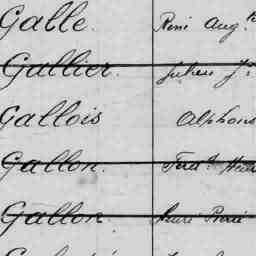 Galle. René Aug.te
Gallier. Julien J.
Gallois Alphons
Gallon. Ferd.d
Gallon. Henri Pierre